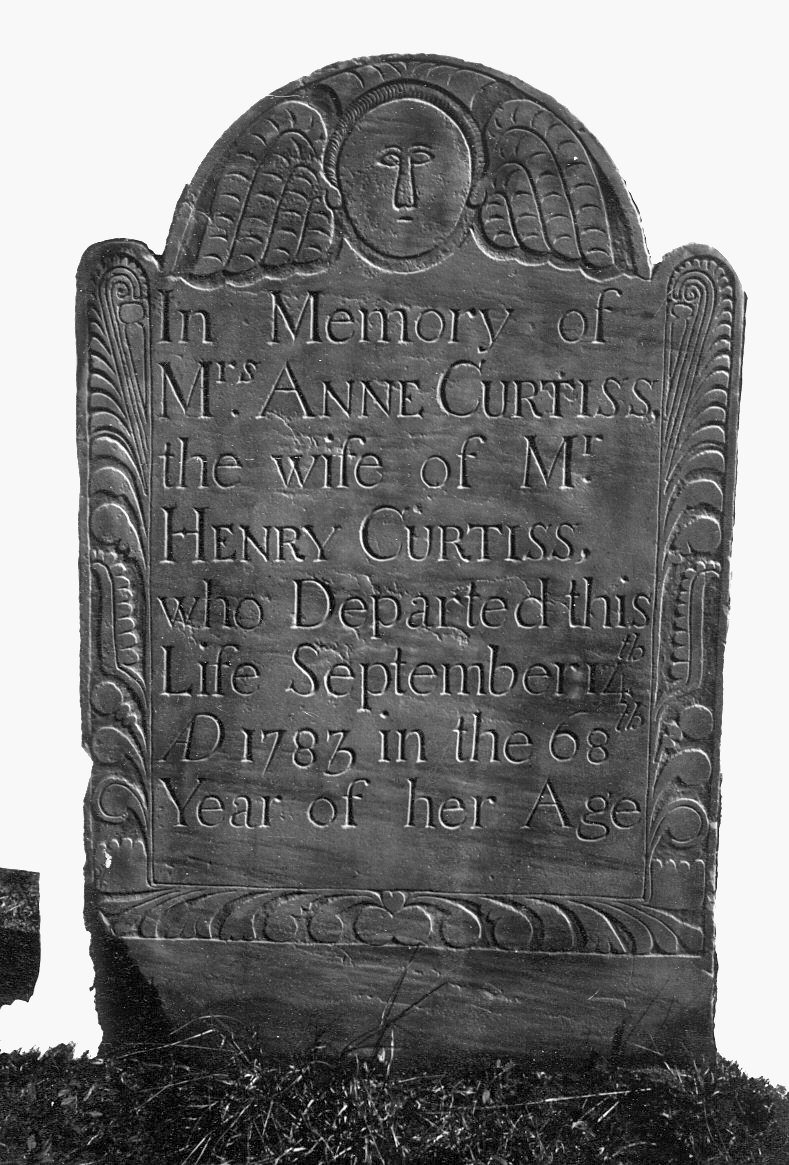 In Memory of
Mrs. ANNE CURTISS,
the wife of Mr.
HENRY CURTISS,
who Departed this
Life September 14th
AD 1783 in the 68th
Year of her Age